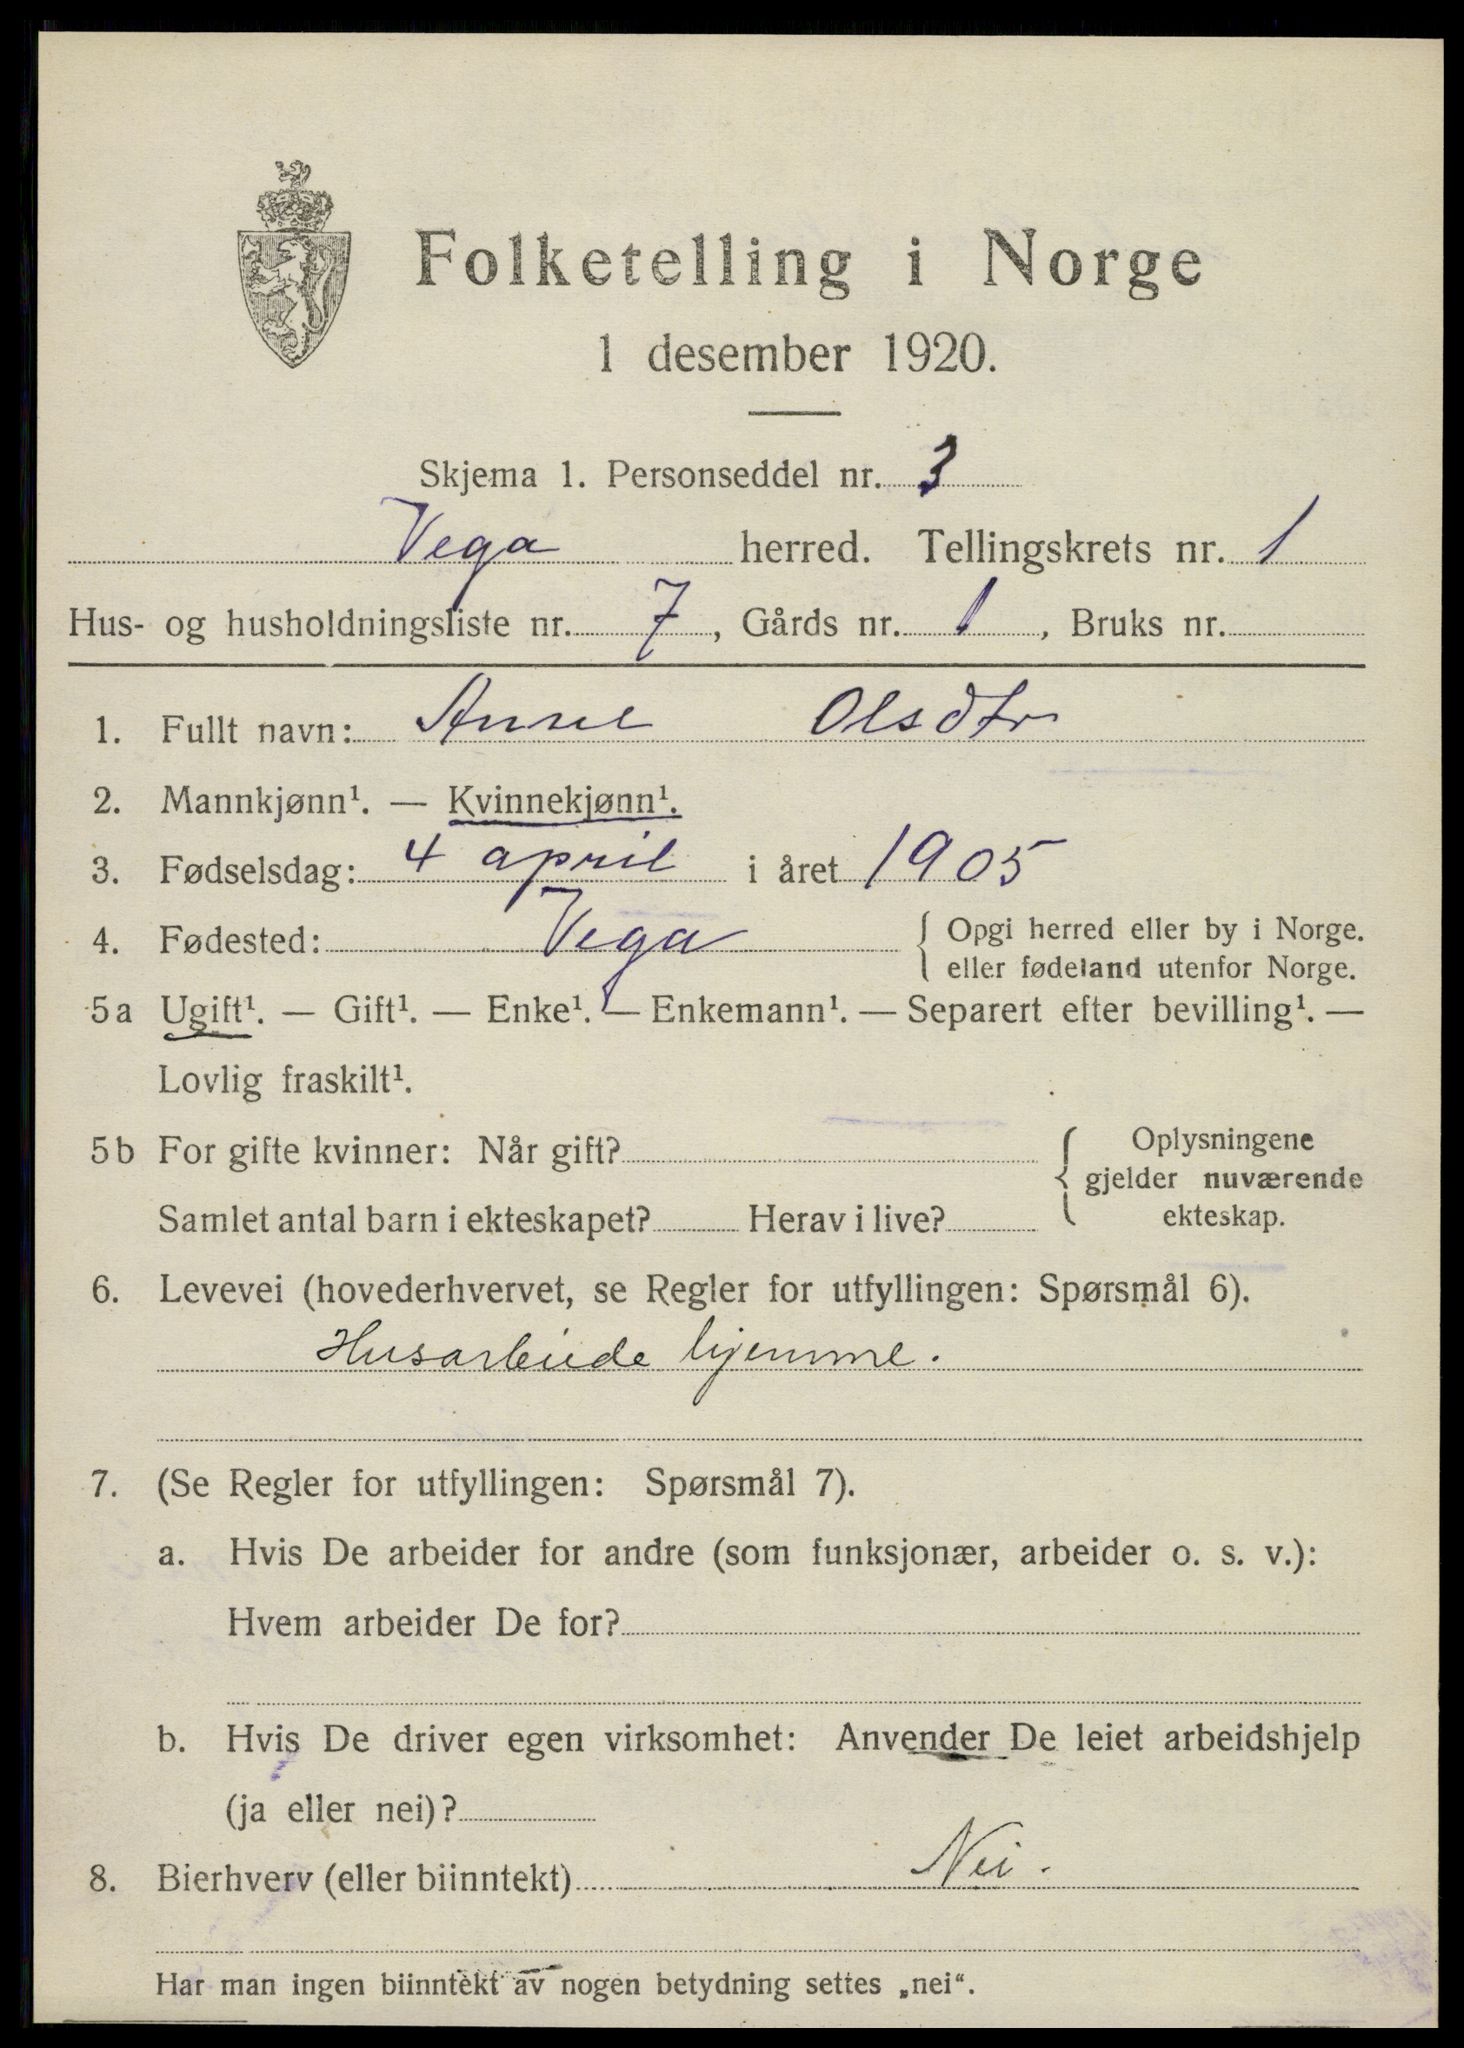 Folketelling i Norge
1 desember 1920.
Skjema 1. Personseddel nr. 3
Vega herred. Tellingskrets nr. 1
Hus- og husholdningsliste nr. 7, Gårds nr. 1, Bruks nr.
1. Fullt navn: Anne Olsdtr
2. Mannkjønn¹. — Kvinnekjønn¹.
3. Fødselsdag: 4 april i året 1905
4. Fødested: Vega { Opgi herred eller by i Norge.
eller fødeland utenfor Norge.
5a Ugift¹. — Gift¹. — Enke¹. — Enkemann¹. — Separert efter bevilling¹. —
Lovlig fraskilt¹.
5b For gifte kvinner: Når gift? { Oplysningene
gjelder nuværende
Samlet antal barn i ekteskapet? Herav i live? ekteskap.
6. Levevei (hovederhvervet, se Regler for utfyllingen: Spørsmål 6).
Husarbeide hjemme.
7. (Se Regler for utfyllingen: Spørsmål 7).
a. Hvis De arbeider for andre (som funksjonær, arbeider o. s. v.):
Hvem arbeider De for?
b. Hvis De driver egen virksomhet: Anvender De leiet arbeidshjelp
(ja eller nei)?
8. Bierhverv (eller biinntekt) Nei.
Har man ingen biinntekt av nogen betydning settes „nei“.